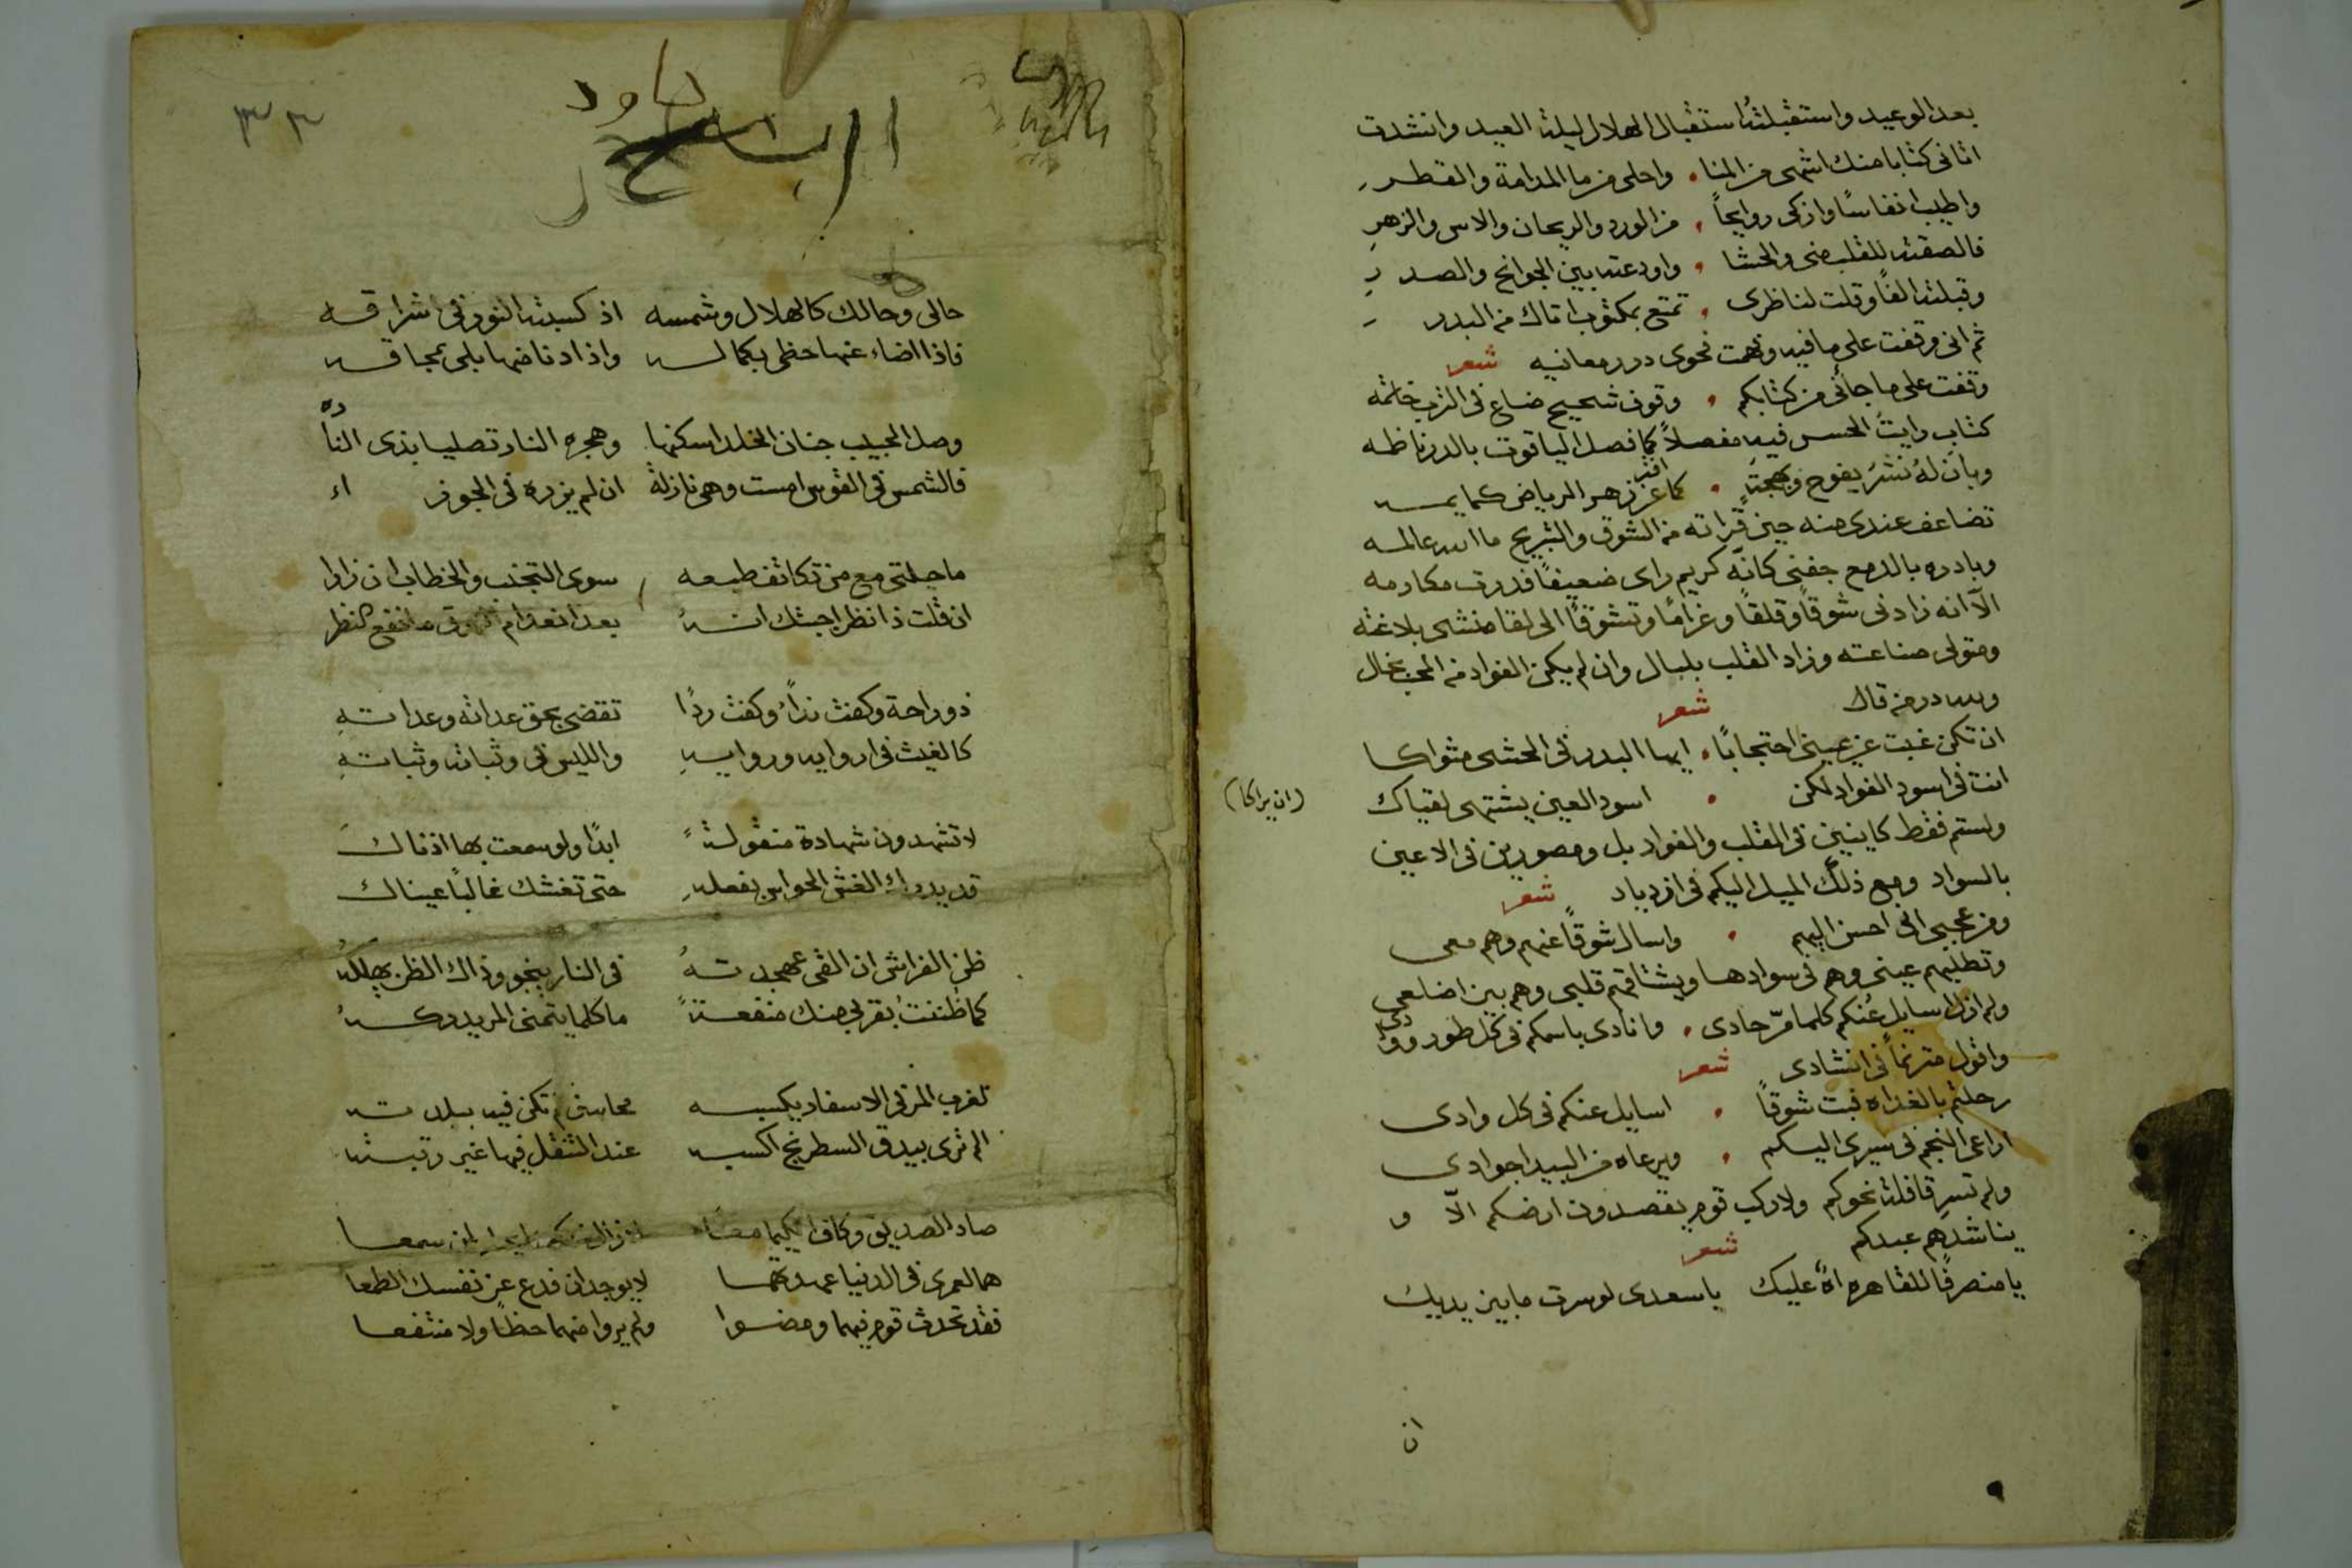 بعد الوعيد واستقبلته استقبال الهلال ليلة العيد وانشدت
اتانى كتابا منك اشهى من المنا . واحلى من ما المدامة والقطر
واطيب انفاسًا وازكى روايحاً . من الورد والريحان والاس والزهرِ
فالصقته للقلب منى والحشا . واودعته بين الجوانح والصدرِ
وقبلته الفًا وقلت لناظرى . تمتع بمكتوب اتاك من البدر
ثم انى وقفت على ما فيه وفهمت فحوى درر معانيه شعر
وقفت على ما جأنى من كتابكم . وقوف شحيح ضاع فى الترب خاتمه
كتاب رايتُ الحسن فيه مفصلاً كما فصل الياقوت بالدر ناظمه
وبان لهُ نشرٌ يفوح وبهجةٍ . كما افتر عن زهر الرياض كمايمه
تضاعف عندى منه حين قراته من الشوق والتبريح ما الله عالمه
وبادره بالدمع جفنى كانّه كريم راى ضعيفًا فدرت مكارمه
الّا انه زادنى شوقًا وقلقًا وغرامًا وتشوقًا الى لقا منشى بلاغته
ومتولى صناعته وزاد القلب بلبال وان لم يكن الفواد من المحب بخال
ولله در من قال شعر
ان تكن غبت عن عينى احتجابًا . ايها البدر فى الحشى مثواكا
انت فى اسود الفواد لكن . اسود العين يشتهى لقياك
(ان يراكا)
ولستم فقط كاينين فى القلب والفواد بل ومصورين فى الاعين
بالسواد ومع ذلك الميل اليكم فى ازدياد شعر
ومن عجبى انى احسن اليهم . واسال شوقًا عنهم وهم معى
وتطلبهم عينى وهم فى سوادها ويشتاقهم قلبى وهم بين اضلعى
ولم ازل سايل عنكم كلما مرّ حادى . وانادى باسمكم فى كل طور ووادى
واقول مترنمًا فى انشادى شعر
رحلتم بالغداه فبت شوقًا . اسايل عنكم فى كل وادى
اراعى النجم فى سيرى اليكم . ويرعاه من البيدا جوادى
ولم تسر قافلة نحوكم ولا ركب قوم يقصدون ارضكم الّا و
يناشدهم عبدكم شعر
يا منصرفًا للقاهره اهً عليك يا سعدى لو سرت ما بين يديك
ان
٣٢
داود
حالى وحالك كالهلال وشمسه اذ كسبته النور فى اشراقه
فاذا اضاء عنها حظى بكماله واذا دنا منها بلى بمحاقه
وصل الحبيب جنان الخلد اسكنها وهجره النار تصليا بذى الناره
فالشمس فى القوس امست وهى نازلة ان لم يزره فى الجوزاء
ما حيلتى مع من تكاثف طبعه سوى التجنب والخطاب ان زارا
ان قلت ذا نظر اجبتك انهُ بعد انعدام ما نفع النظر
ذو راحة وكفت نداً وكفت ردًا تقضى بحق عداته وعداتهِ
كالغيث فى اروايه وروايهِ والليس فى وثباته وثباتهِ
لا تشهدون شهادة منقولةً ابدًا ولو سمعت بها اذناك
قد يدرك الغش الحواس بفعلهِ حتى تغشك غالبًا عيناك
ظن الفراش ان القى مهجتهُ فى النار ينجو وذاك الظن يهلكهُ
كما ظننتُ بقربى منك منفعةً ما كلما يتمنى المر يدركهُ
تغرب المر فى الاسفار يكسبه محاسن لم تكن فيه ببلدته
الم ترى بيدق السطرنج اكسبه عند التنقل فيها غير رتبته
صاد الصديق وكاف الكيميا معًا سمعا
هما لعمرى فى الدنيا لا يوجدان فدع عن نفسك الطمعا
فقد تحدث قوم فيهما ومضوا ولم يروا منهما حظًا ولا منتفعا